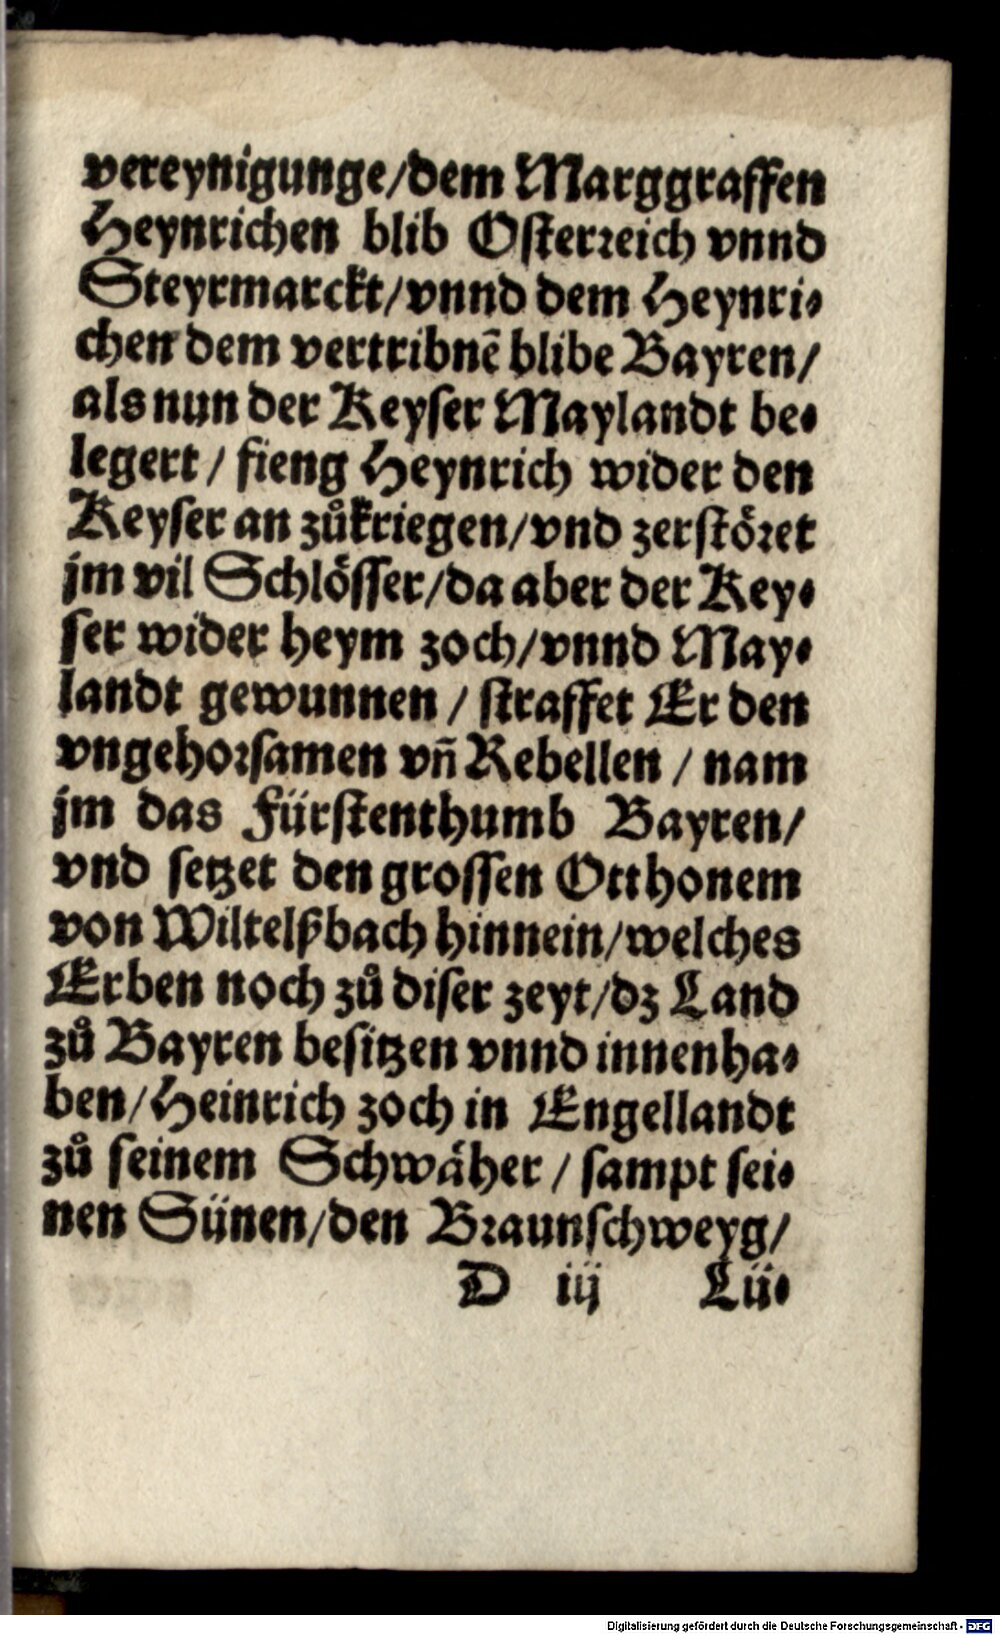 vereynigunge/dem Marggraffen
Heynrichen blib Osterreich vnnd
Steyrmarckt/vnnd dem Heynri-
chen dem vertribnē blibe Bayren/
als nun der Keyser Maylandt be-
legert/ fieng Heynrich wider den
Keyser an zůkriegen/vnd zerstöret
jm vil Schlösser/da aber der Key-
ser wider heym zoch/vnnd May-
landt gewunnen/ straffet Er den
vngehorsamen vñ Rebellen/ nam
jm das Fürstenthumb Bayren/
vnd setzet den grossen Otthonem
von Wiltelßbach hinnein/welches
Erben noch zů diser zeyt/dz Land
zů Bayren besitzen vnnd innenha-
ben/Heinrich zoch in Engellandt
zů seinem Schwäher/ sampt sei-
nen Sünen/den Braunschweyg/
D iij Lü-
Digitalisierung gefördert durch die Deutsche Forschungsgemeinschaft - DFG